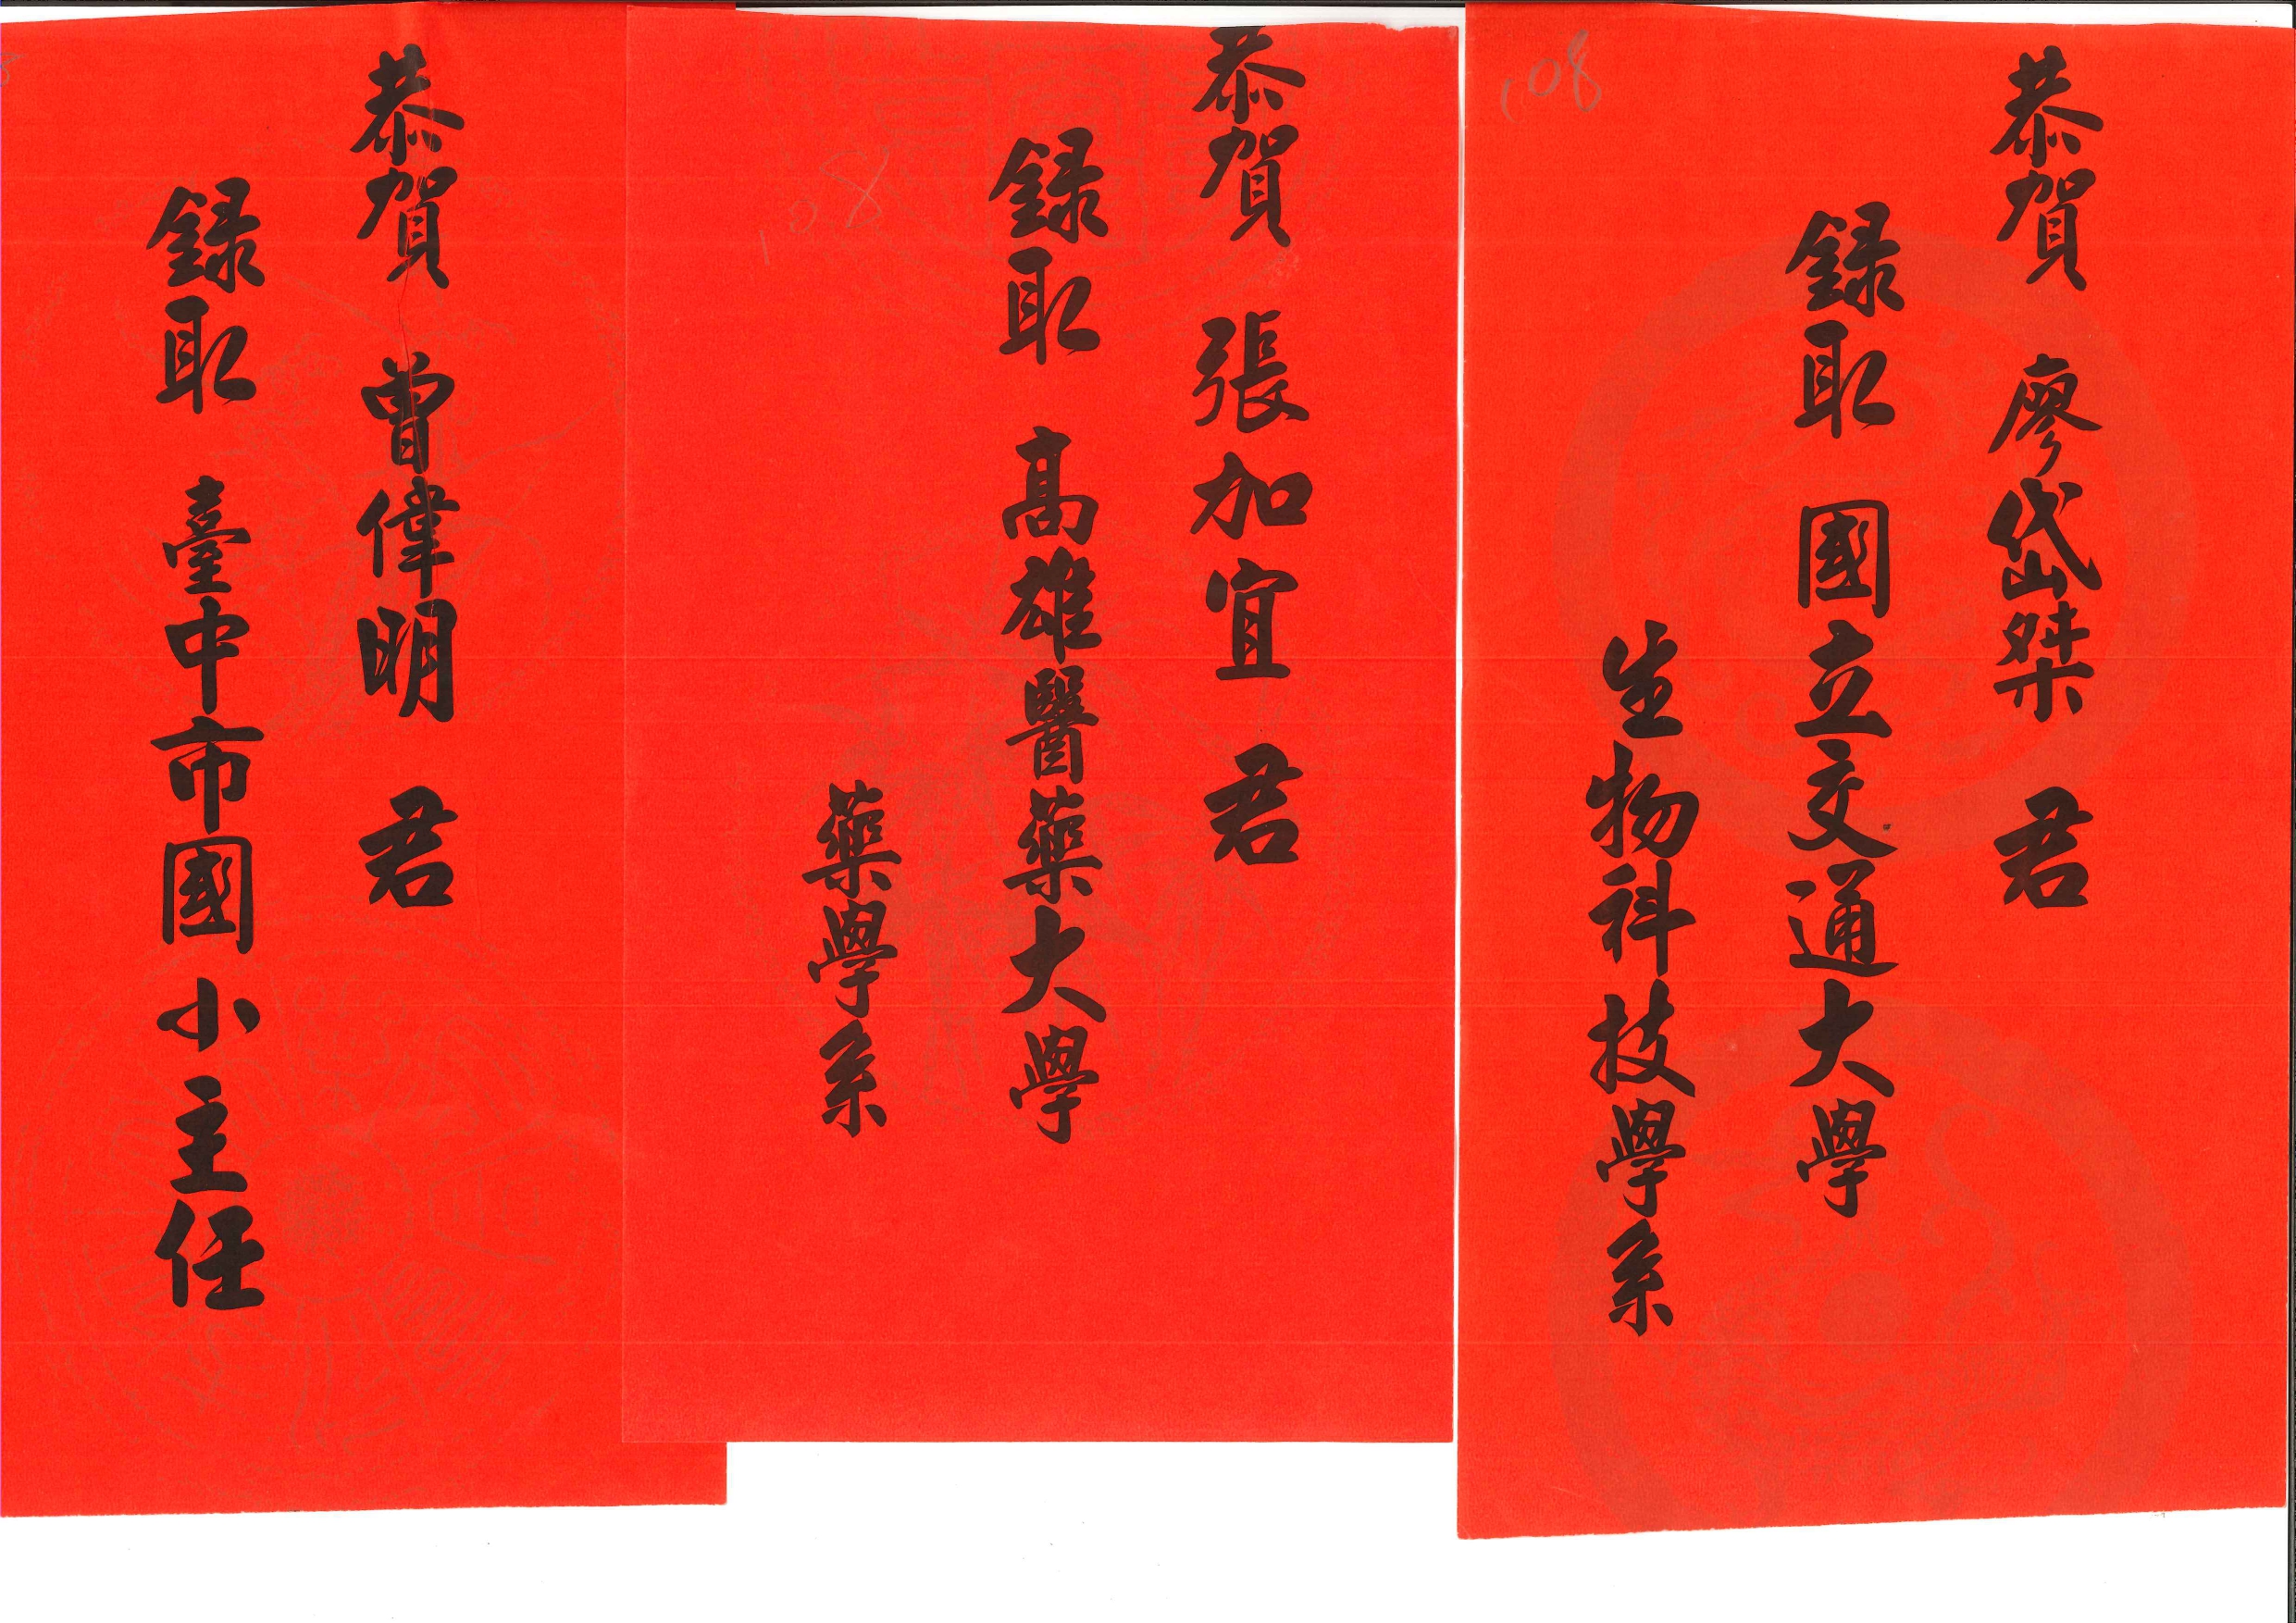 恭賀 廖岱桀 君
錄取 國立交通大學
生物科技學系
108
恭賀 張加宜 君
錄取 高雄醫藥大學
藥學系
108
恭賀 曾偉明 君
錄取 臺中市國小主任